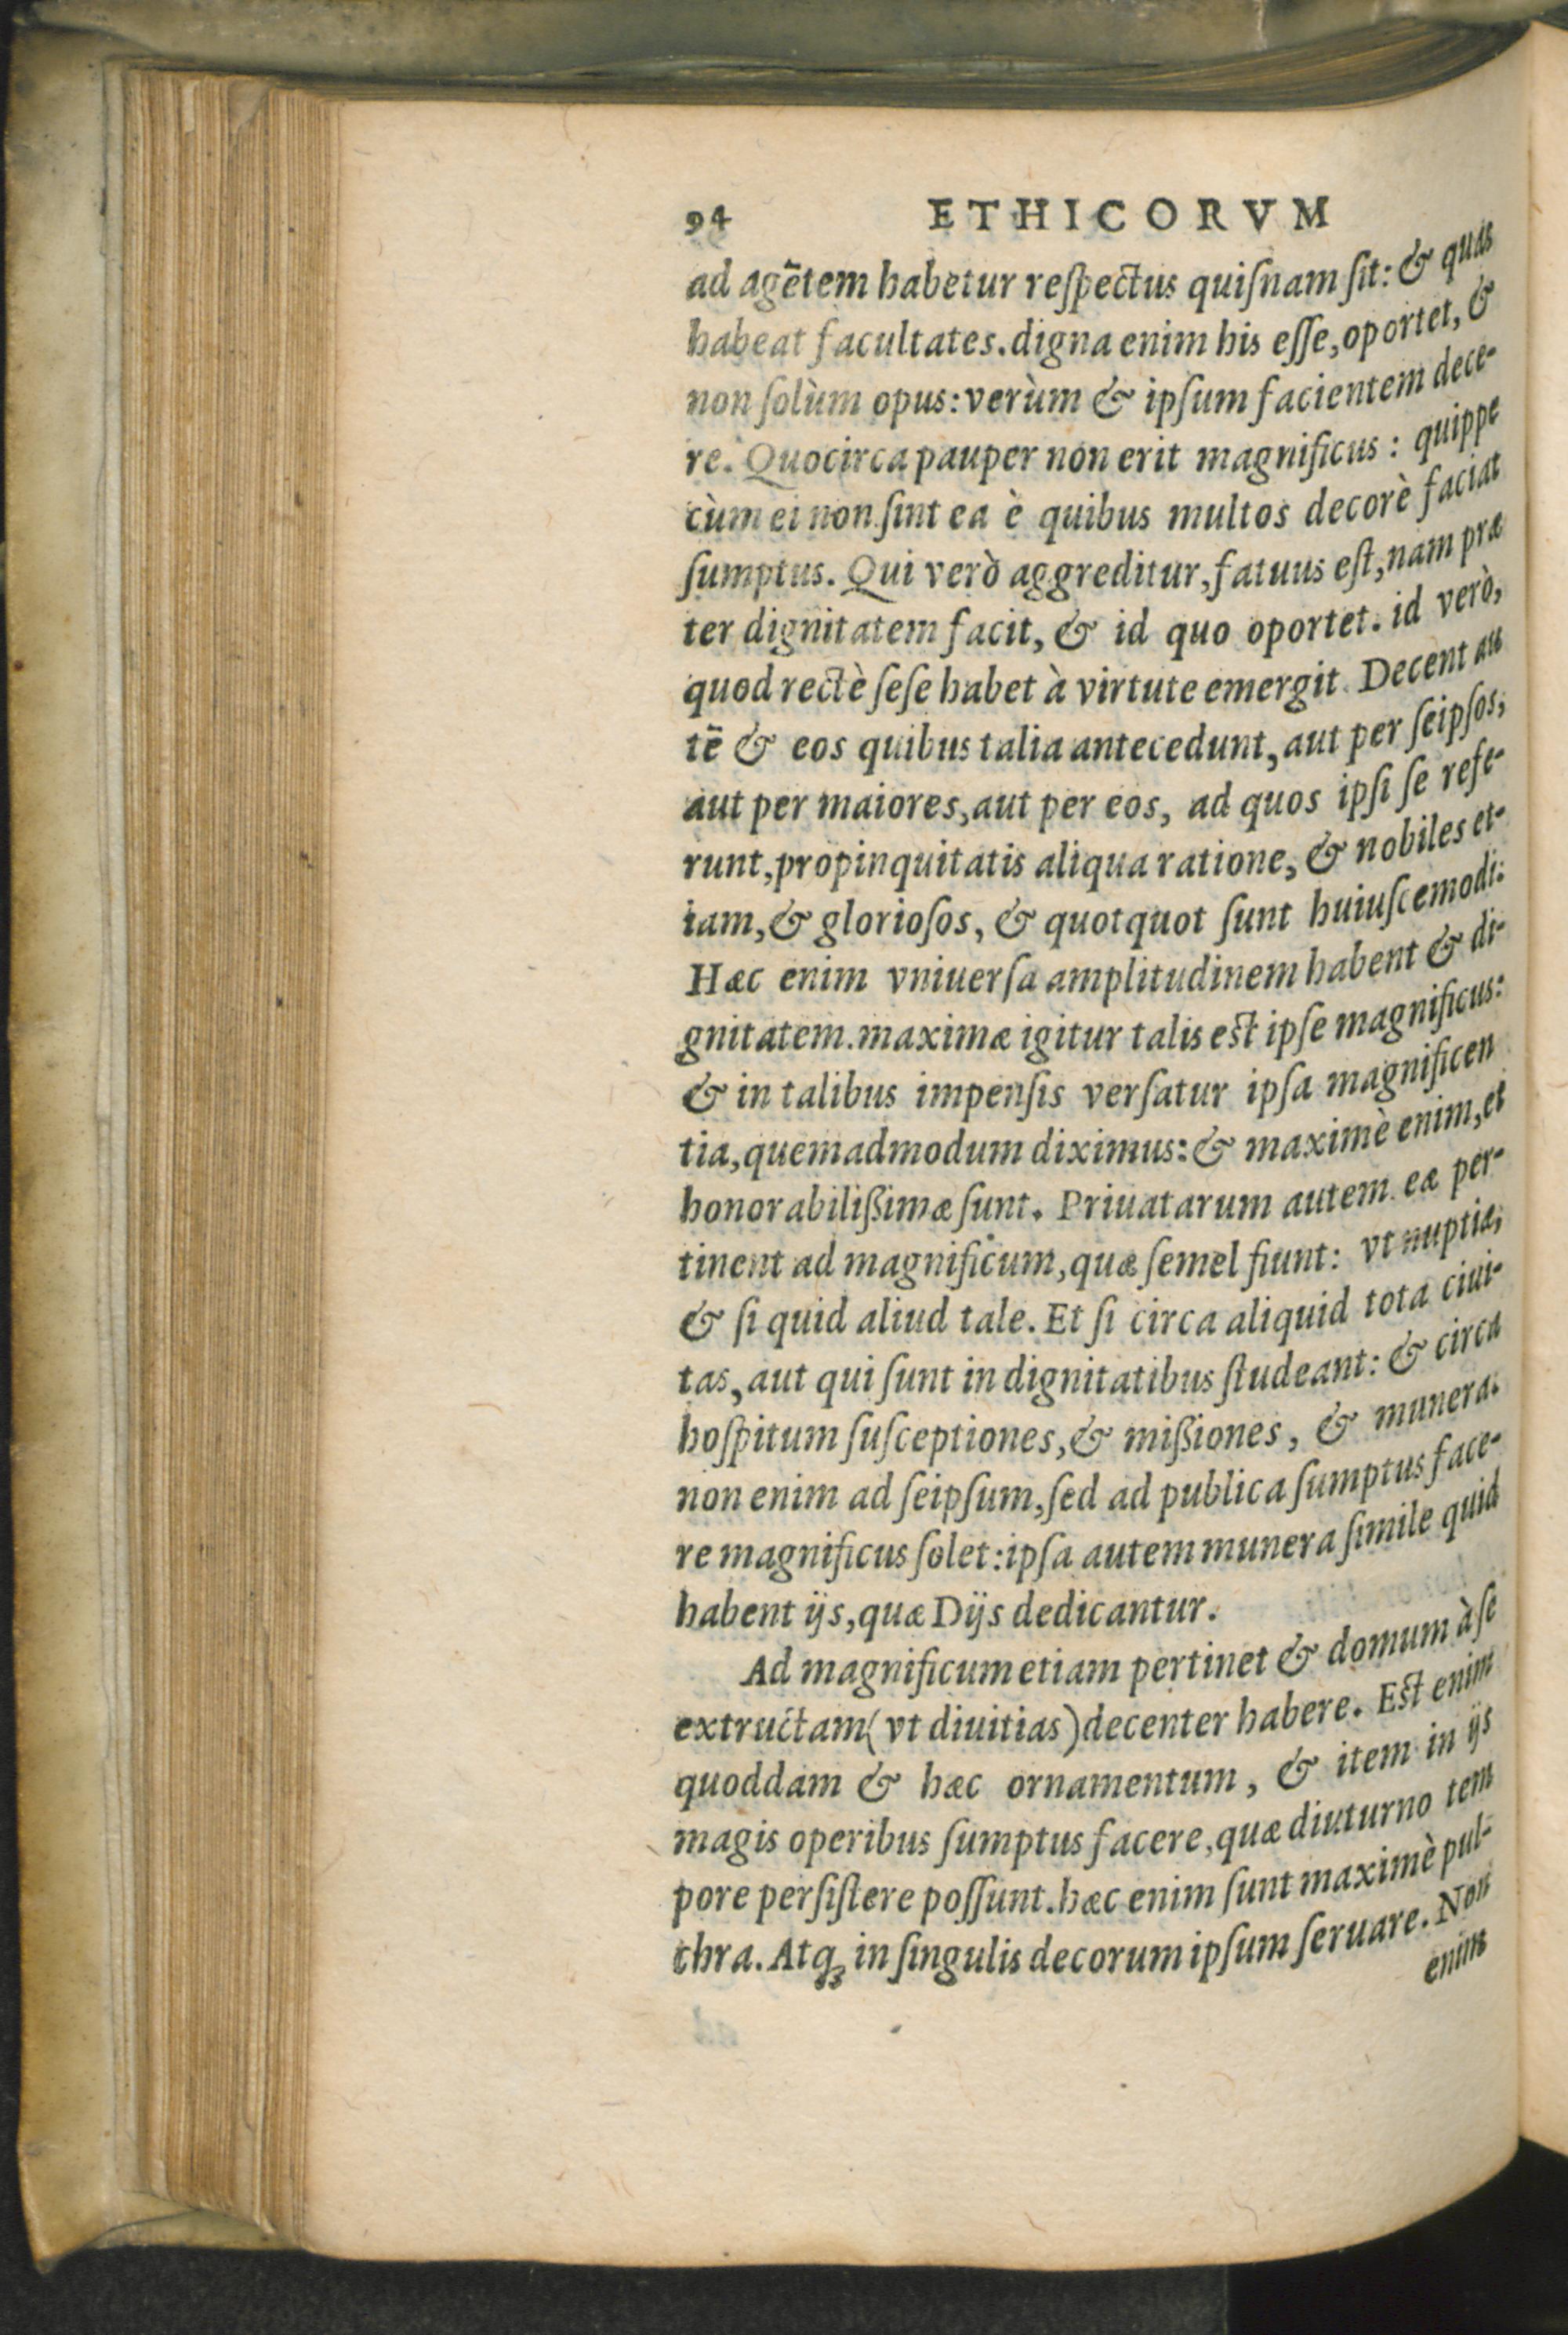 94 ETHICORVM
ad agētem habetur reſpectus quiſnam ſit: & quas
habeat facultates. digna enim his eſſe, oportet, &
non ſolùm opus: verùm & ipſum facientem dece-
re. Quocirca pauper non erit magnificus: quippe
cùm ei non ſint ea è quibus multos decorè faciat
ſumptus. Qui verò aggreditur, fatuus eſt, nam præ
ter dignitatem facit, & id quo oportet. id verò,
quod rectè ſeſe habet à virtute emergit. Decent au
tē & eos quibus talia antecedunt, aut per ſeipſos,
aut per maiores, aut per eos, ad quos ipſi ſe refe-
runt, propinquitatis aliqua ratione, & nobiles et-
iam, & glorioſos, & quotquot ſunt huiuſcemodi:
Hæc enim vniuerſa amplitudinem habent & di-
gnitatem. maximæ igitur talis eſt ipſe magnificus:
& in talibus impenſis verſatur ipſa magnificen
tia, quemadmodum diximus: & maximè enim, et
honorabilißimæ ſunt. Priuatarum autem eæ per-
tinent ad magnificum, quæ ſemel fiunt: vt nuptiæ,
& ſi quid aliud tale. Et ſi circa aliquid tota ciui-
tas, aut qui ſunt in dignitatibus ſtudeant: & circa
hoſpitum ſuſceptiones, & mißiones, & munera.
non enim ad ſeipſum, ſed ad publica ſumptus face-
re magnificus ſolet: ipſa autem munera ſimile quid
habent ijs, quæ Dijs dedicantur.
Ad magnificum etiam pertinet & domum à ſe
extructam (vt diuitias) decenter habere. Eſt enim
quoddam & hæc ornamentum, & item in ijs
magis operibus ſumptus facere, quæ diuturno tem
pore perſiſtere poſſunt. hæc enim ſunt maximè pul-
chra. Atq; in ſingulis decorum ipſum ſeruare. Non
enim